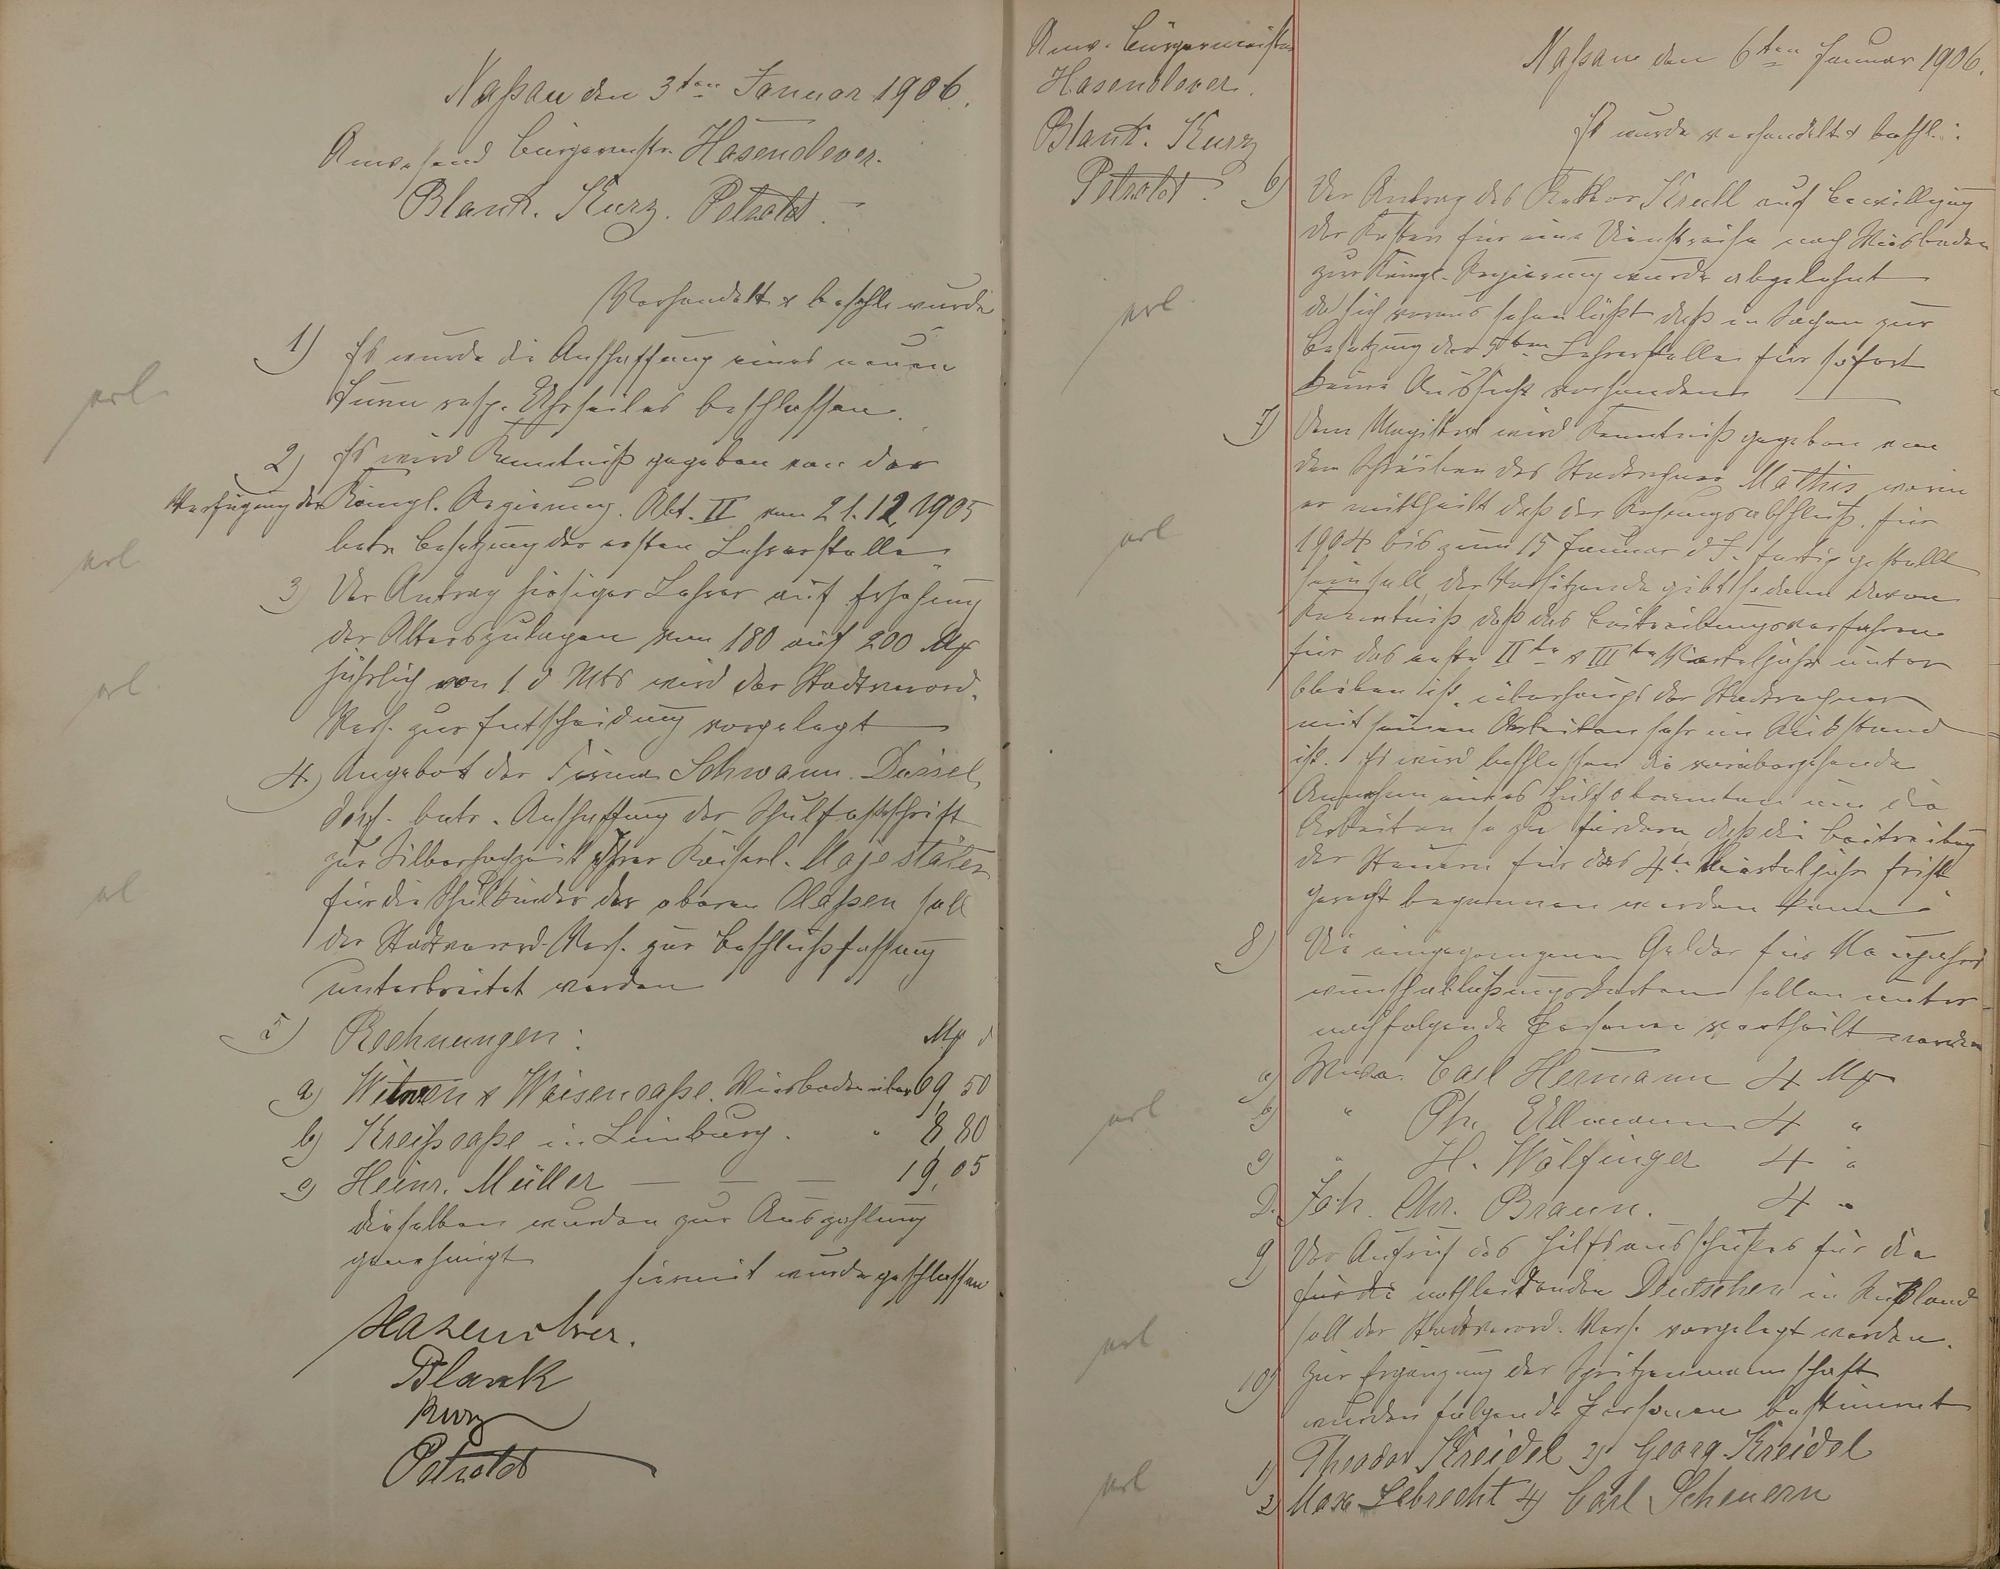 Naßau den 3ten Januar 1906.
Anwesend Bürgermstr. Hasenclever.
Blank. Kurz. Petzoldt.
Verhandelt & beschl. wurde
1) Es wurde die Anschaffung eines neuen
resp. Uhrseiles beschlossen.
erl
2) Es wird Kenntniß gegeben von der
Verfügung der Königl. Regierung. Abt. II vom 21.12.1905
betr. Besetzung der ersten Lehrerstelle
erl
3) Der Antrag hiesiger Lehrer auf Erhöhung
der Alterszulagen von 180 auf 200 Mk
jährlich von 1 d Mts wird der Stadtverord.
Vers. zur Entscheidung vorgelegt
erl.
4) Angebot der Firma Schwann. Düssel,
dorf. betr. Anschaffung der Schulfestschrift
zur Silberhochzeit Ihrer Kaiserl. Majestäten
für die Schulkinder der oberen Claßen soll
der Stadtverord. Vers. zur Beschlußfassung
unterbreitet werden
erl
5) Rechnungen: Mk d
a) Witwen & Waisencaße. Wiesbaden über 69,50
b) Kreißcaße in Limburg. " 8,80
c) Heinr. Müller — — — 19,05
dieselben wurden zur Auszahlung
genehmigt
hiermit wurde geschlossen
Hasenclever.
Blank
Kurz
Petzoldt
Anw. Bürgermeister
Hasenclever.
Blank. Kurz
Petzoldt.
Naßau den 6ten Januar 1906.
Es wurde verhandelt & beschl.:
6) Der Antrag des Rektor Krull auf Bewilligung
der Kosten für eine Dienstreise nach Wiesbaden
zur Königl. Regierung wurde abgelehnt
da sich voraus sehen läßt daß in Sachen zur
Besetzung der 5ten Lehrerstelle für sofort
keine Aussicht vorhanden
erl
7) Dem Magistrat wird Kenntniß gegeben von
dem Schreiben des Stadtrechner Mathis worin
er mittheilt daß der Rechnungsabschluß für
1904 bis zum 15 Januar d J. fertig gestellt
sein soll, der Vorsitzende gibt davon
Kenntniß daß das Beitreibungsverfahren
für das erste IIte & IIIte Vierteljahr unter
blieben ist, überhaupt der Stadtrechner
mit seinen Arbeiten sehr im Rückstand
ist. Es wird beschlossen die vorübergehende
Annahme eines Hülfsbeamten um die
Arbeiten so zu fördern, daß die Beitreibung
der Steuern für das 4te Vierteljahr frist
gerecht begonnen werden kann
erl
8) Die eingegangenen Gelder für Neujahrs
wunschablößungskarten sollen unter
nachfolgende Personen vertheilt werden
a) Wwe. Carl Hermann 4 Mk
b) " Ph. Ullmann 4 "
c) " H. Wölfinger 4 "
D. Joh. Chr. Braun. 4 "
erl
9) Der Aufruf des Hilfsausschußes für die
für die nothleidenden Deutschen in Rußland
soll der Stadtverord. Vers. vorgelegt werden.
erl
10) Zur Ergänzung der Spritzenmannschaft
wurden folgende Personen bestimmt
1) Theodor Kreidel 3) Georg Kreidel
2) Max Lebrecht 4) Carl Scheuern
erl